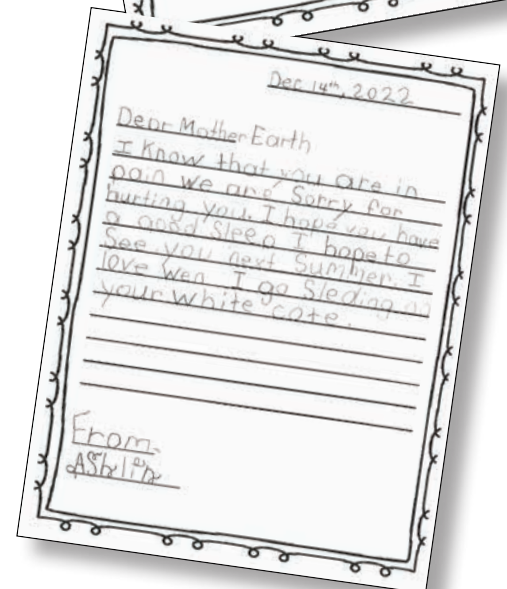 Dec 14th, 2022
Dear Mother Earth
I know that you are in
pain we are Sorry for
hurting you. I hope you have
a good Sleep I hope to
See you next Summer. I
love wen I go Sleding on
your white cote.
From
AShlin